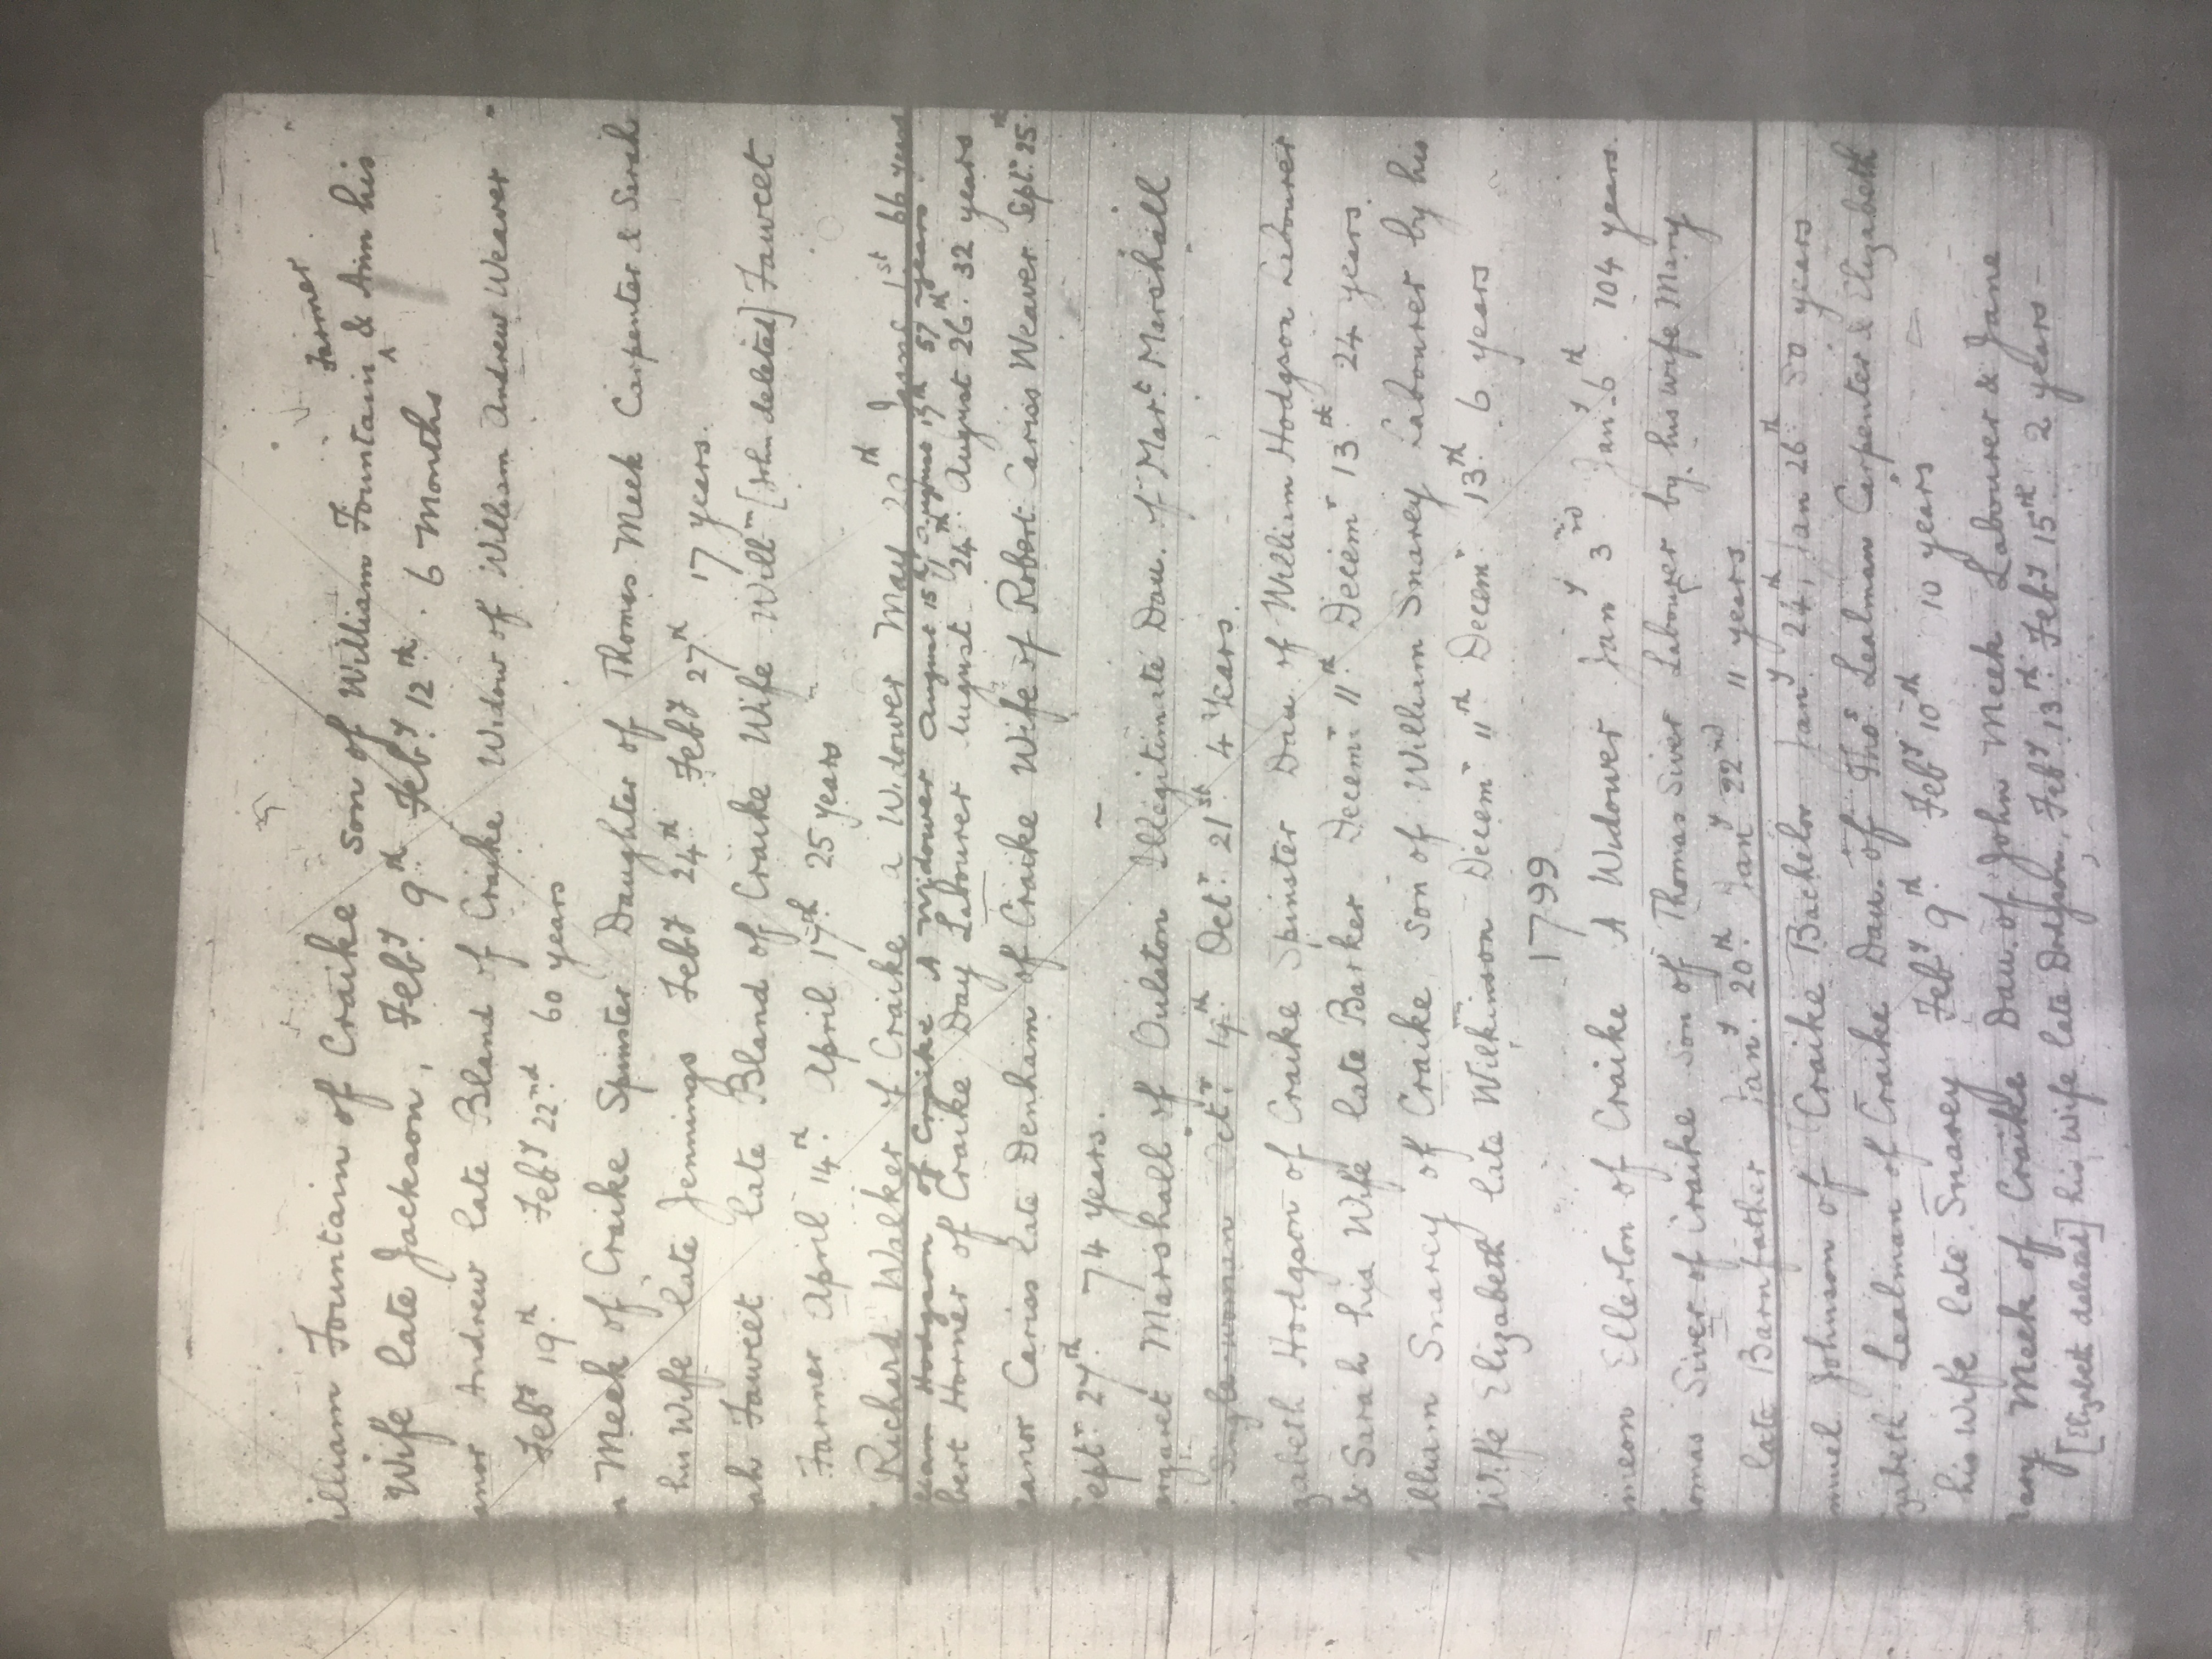 Farmer
illiam Fountain of Craike son of William Fountain ^ & Ann his
Wife late Jackson, Feby 9th Feby 12th. 6 Months
anor Andrew late Bland of Craike Widow of William Andrew Weaver
Feby 19th Feby 22nd 60 years
n Meek of Craike Spinster Daughter of Thomas Meek Carpenter & Sarah
his Wife late Jennings Feby 24th Feby 27th 17 years.
ah Fawcet late Bland of Craike Wife Willm [John deleted] Fawcet
Farmer April 14th. April 17th 25 years
Richard Walker of Craike a Widower May th 1st 66 years
liam Hodgson of Craike A Widower August 15th August 17th 57 years.
bert Horner of Craike Day Labourer August 24th August 26th. 32 years
eanor Cariss late Denham of Craike Wife of Robert Cariss Weaver Septr. 25th
Septr 27th 74 years.
argaret Marshall of Oulston Illegitimate Dau. of Mart Marshall
Singlewoman Octr. 19th Octr. 21st 4 Years.
zabeth Hodgson of Craike Spinster Dau of William Hodgson Labourer
& Sarah his Wife late Barker Decemr 11th Decemr 13th 24 years.
William Snarey of Craike Son of William Snarey Labourer by his
Wife Elizabeth late Wilkinson Decemr 11th Decemr 13th 6 years
1799
imeon Ellerton of Craike A Widower Jany 3rd Jany 6th 104 years.
homas Siver of Craike Son of Thomas Siver Labourer by his wife Mary
late Barnfather Jany. 20th. Jany 22nd 11 years.
muel Johnson of Craike Bachelor Jany 24th, Jan 26th 50 years
zabeth Lealman of Craike Dau. of Thos Lealman Carpenter & Elizabeth
his Wife late Snarey Feby 9th. Feby 10th 10 years
ary Meek of Craike Dau. of John Meek Labourer & Jane
[Elizabeth deleted] his wife late Dodgson, Feby 13th. Feby 15th. 2 years